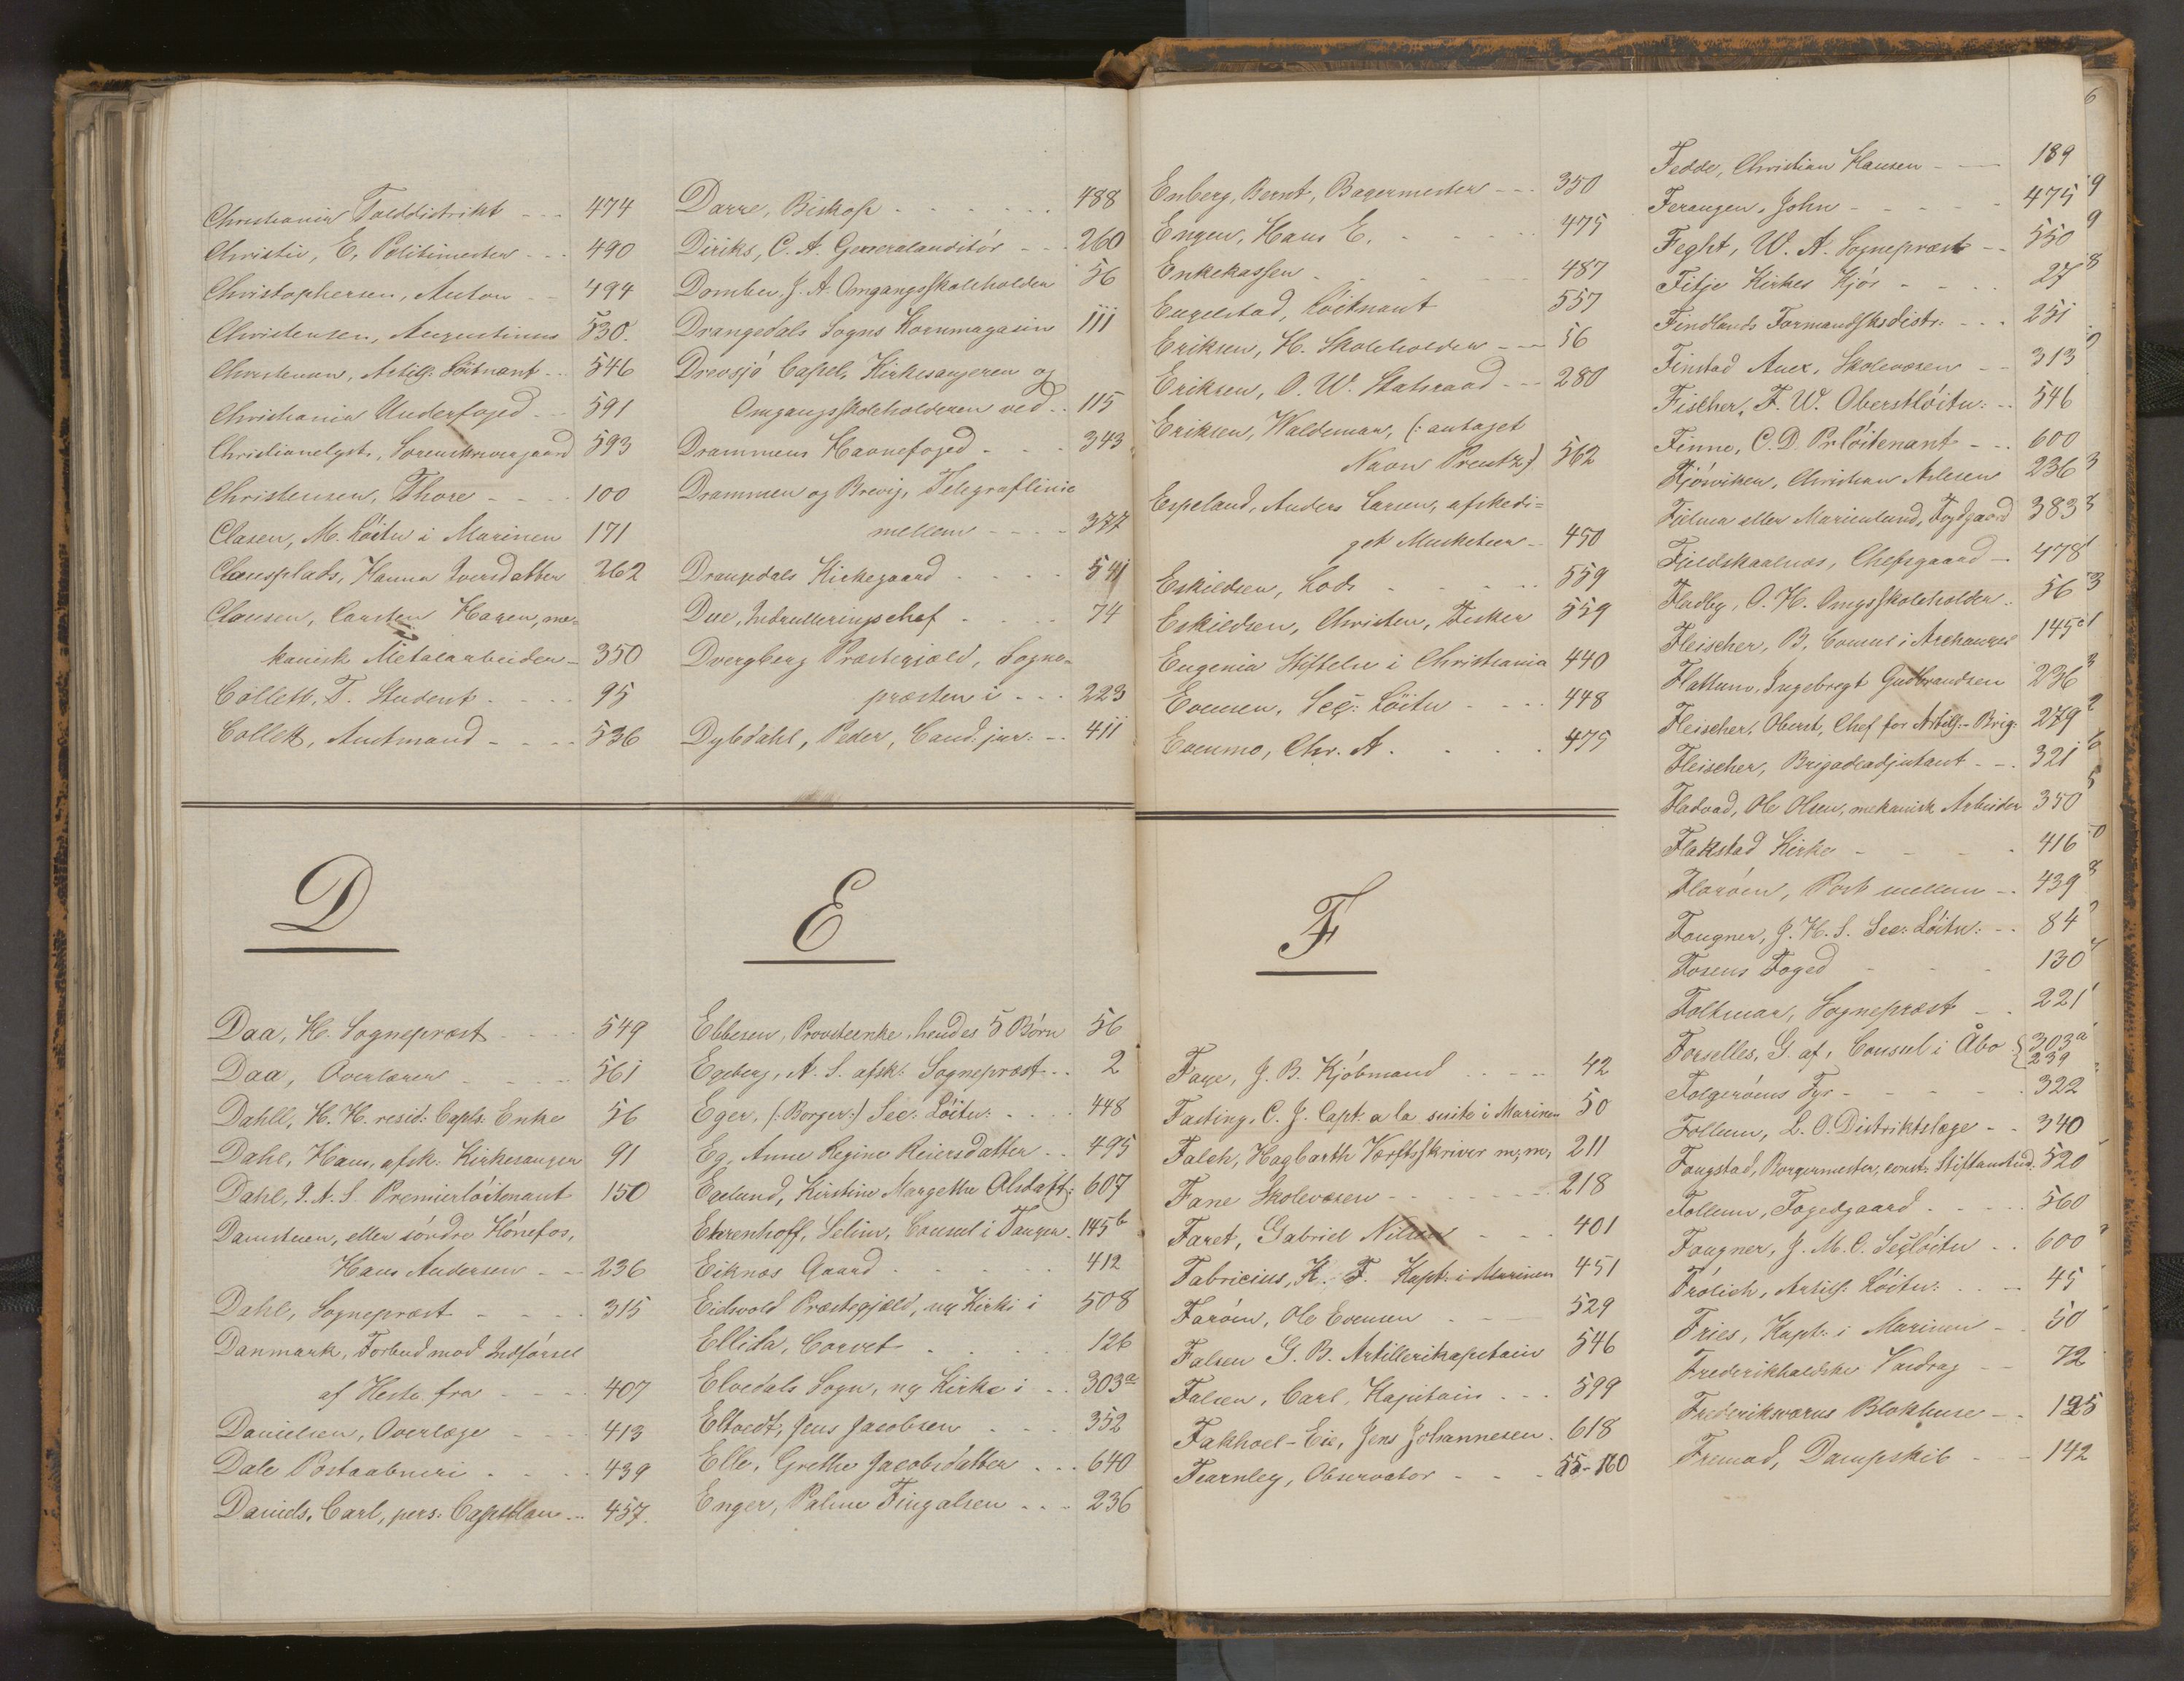 Christiania Tolddistrikt - - - 474
Christie, E, Politimester - - - 490
Christophersen, Anton - - 494
Christensen, Augustinus 530.
Christensen, Artill: Löitnant - - 546
Christiania Underfoged - - - 591
Christianelyst, Sorenskrivergaard 593
Christensen, Thore - - - - 100
Clasen, M. Löitn i Marinen 171
Clausplads, Hanna Iversdatter 262
Clausen, Carsten Hagen, me-
kanisk Metalarbeider - 350
Collett, T. Student - - - - 95
Collett, Amtmand - - - - 536
D
Daa, H. Sognepræst - - - - 549
Daa, Overlærer - - - - 561
Dahll, H. H. resid: Capls: Enke 56
Dahl, Hans, afsk: Kirkesanger 91
Dahl, J. A. S. Premierlöitenant 150
Damstuen, eller söndre Hönefos,
Hans Andersen - - 236
Dahl, Sognepræst - - - - 315
Danmark, Forbud mod Indförsel
af Heste fra - - - - 407
Danielsen, Overlæge - - - - 413
Dale Postaabneri - - - - 439
Daniels, Carl, pers: Capellan - - 457.
Darre, Biskop - - - - - - 488
Diriks, C. A. Generalauditör - - - 260
Domben, J. A. Omgangsskoleholder 56
Drangedals Sogns Kornmagasin 111
Drevsjö Capel, Kirkesangeren og
Omgangsskoleholderen ved - - 115
Drammens Havnefoged - - - 343
Drammen og Brevig, Telegraflinie
mellem - - - - 377
Drangedals Kirkegaard - - - - 541
Due, Indrulleringschef - - - - 74
Dvergberg Præstegjæld, Sogne-
præsten i - - - 223
Dybdahl, Peder, Cand: jur: - - 411
E
Ebbesen, Provsteenke, hendes 5 Börn 56
Egeberg, A. S. afsk: Sognepræst - - 2
Eger, (: Borger:) Sec: Löitn: - - - - 448
Eg, Anne Regine Reiersdatter - - 495
Egelund, Kirstine Margethe Olsdatt: 607
Ehrenhoff, Selim, Consul i Tanger - 145 b
Eiknæs Gaard - - - - - - 412
Eidsvold Præstegjæld, ny Kirke i 508
Ellida, Corvet - - - - - 126
Elvedals Sogn, ny Kirke i - - 303 a
Eltvedt, Jens Jacobsen - - - 352
Elle, Grethe Jacobsdatter - - - 640
Enger, Palme Fingalsen - - - 236
Enberg, Bernt, Bagermester - - - 350
Engen, Hans E. - - - - - 475
Enkekassen - - - - - 487
Engelstad, Löitnant 557
Eriksen, H. Skoleholder - - - 56
Eriksen, O. W. Statsraad - - - 280
Eriksen, Waldemar, (: antaget
Navn Preutz) 562
Espeland, Anders Larsen, afskedi-
get Musketeer - - 450
Eskildsen, Lods - - - - - 559
Eskildsen, Christen, Fisker 559
Eugenia Stiftelse i Christiania 440
Evensen, Sec: Löitn - - - - 448
Evenmo, Chr. A. - - - - 475
F
Faye, J. B. Kjöbmand - - - - 42
Fasting, C. J. Capt: a la suite i Marinen 50
Falch, Hagbarth Værftsskriver m; m; 211
Fane Skolevæsen - - - - - - 218
Faret, Gabriel Nilsen - - - 401
Fabricius, K. F. Kapt: i Marinen 451
Faröen, Ole Evensen - - - 529
Falsen G. B. Artillerikapitain 546
Falsen, Carl, Kapitain - - - 599
Fakhoel-Eie, Jens Johannesen. 618
Fearnley, Observator - - - 55 - 160
Fedde, Christian Hansen - - - 189
Ferangen, John - - - - - 475
Feght, W. A. Sognepræst - - 550
Fitje Kirkes Kjör - - - - 27
Findlands Formandskdistr: - - - 251
Finstad Anex, Skolevæsen - - 313
Fischer, F. W. Oberstlöitn: - - 546
Finne, C. D. Prlöitenant - - - 600
Fjösviken, Christian Arlesen 236
Fjelma eller Marienlund, Fogdgaard 383
Fjeldskaalnæs, Chefsgaard - - 478
Fladby, O. H. Omgsskoleholder - 56
Fleischer, B, Consul i Archangel 145 a
Flattum, Ingebregt Gudbrandsen 236
Fleischer, Oberst, Chef for Artill:-Brig: 279
Fleischer, Brigadeadjutant - - 321
Flatvad, Ole Olsen, mekanisk Arbeider 350
Flakstad Kirke - - - - 416
Floröen, Post mellem - - 439
Fougner, J. H. S. Sec: Löitn: - - 84
Fosens Foged - - - 130
Folkmar, Sognepræst - - 221
Forselles, G. af, Consul i Åbo { 303 a
239
Folgeröens Fyr - - - - - 322
Follum, L. O. Distriktslæge - - 340
Fougstad, Borgermester, const: Stiftamtmd. 520
Follum, Fogedgaard - - - - 560
Fougner, J. M. C. Seclöitn - - 600
Frölich, Artill: Löitn: - - - 45
Fries, Kapt: i Marinen - - 50
Frederikhaldske Vasdrag - - 72
Frederiksværns Blokhuse - - 125
Fremad, Dampskib - - 142